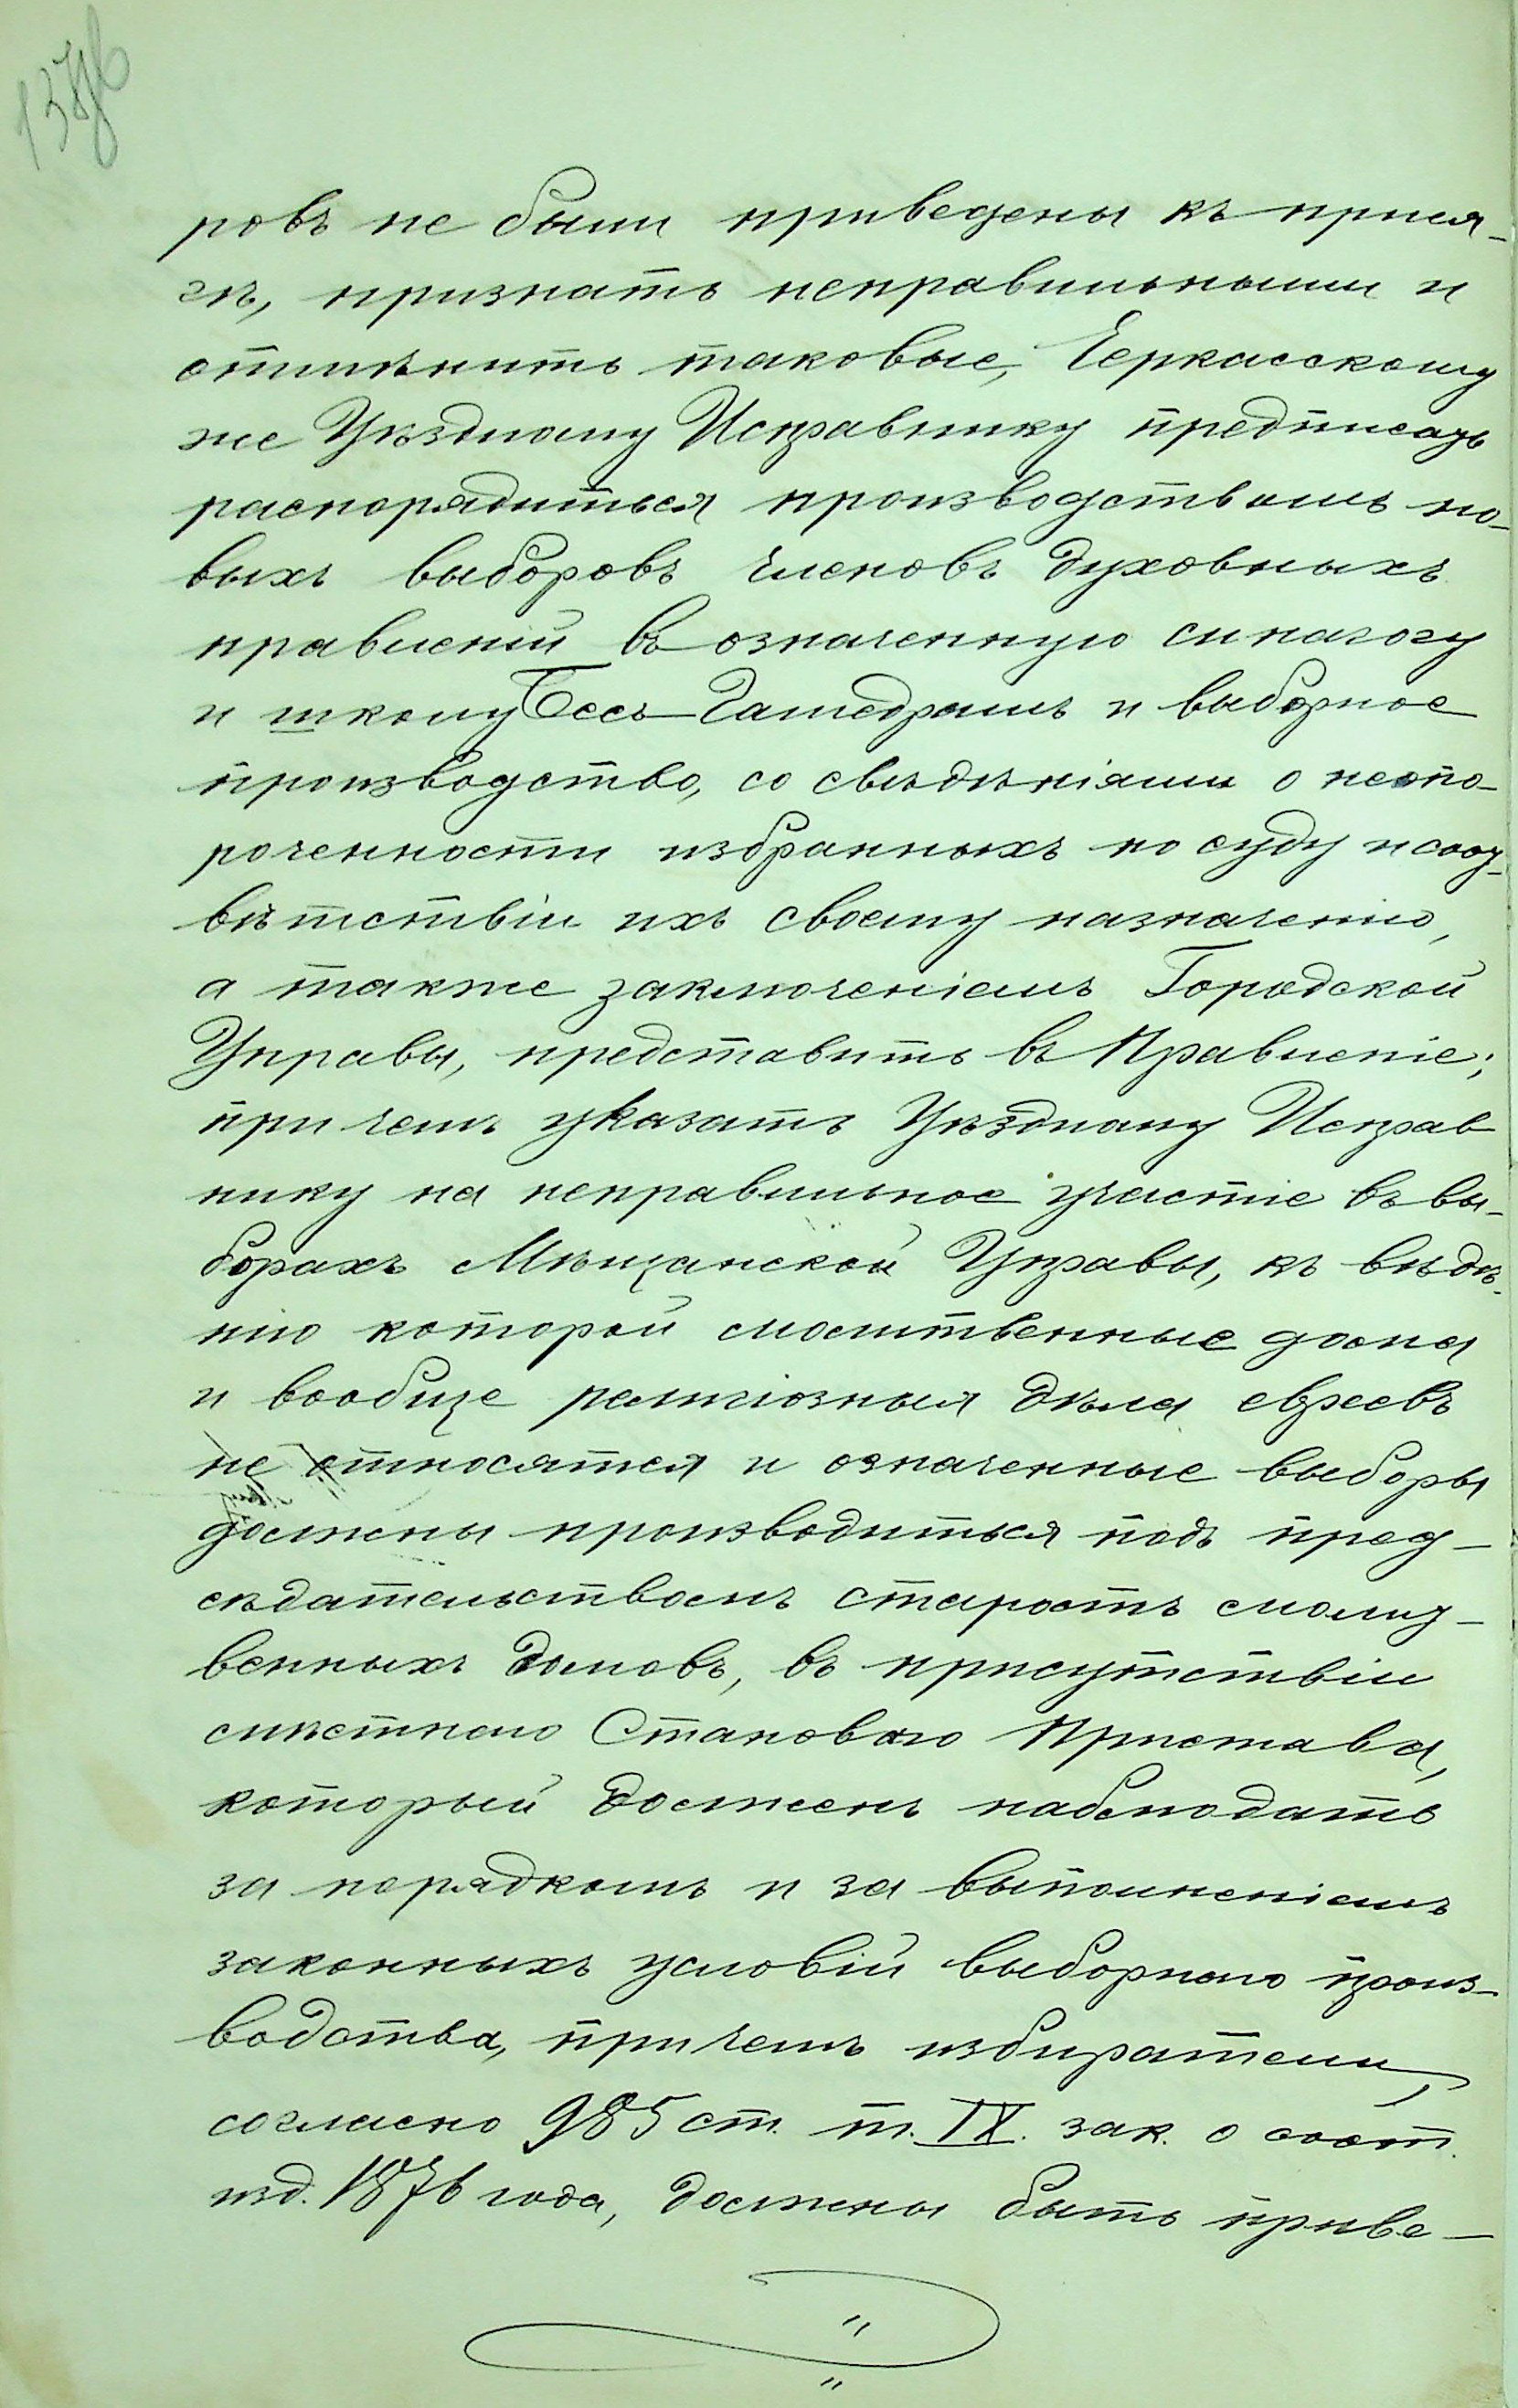 ровъ не были приведены къ прися-
гѣ, признать неправильными и
отмѣнить таковые, Черкасскому
же Уѣздному Исправнику предписать
распорядиться производствомъ но-
выхъ выборовъ членовъ духовныхъ
правленій въ означенную синагогу
и школу Бесъ-Гамедрашъ и выборное
производство, со свѣдѣніями о неопо-
роченности избранныхъ по суду и соот-
вѣтствіи ихъ своему назначенію,
а также заключеніемъ Городской
Управы, представить въ Правленіе;
при чемъ указать Уѣздному Исправ
нику на неправильное участіе въ вы-
борахъ Мѣщанской Управы, къ вѣдѣ-
нію которой молитвенные дома
и вообще религіозныя дѣла евреевъ
не относятся и означенные выборы
должны производиться подъ пред-
сѣдательствомъ старостъ молит-
венныхъ домовъ, въ присутствіи
мѣстнаго Становаго Пристава,
который долженъ наблюдать
за порядкомъ и за выполненіемъ
законныхъ условій выборнаго произ-
водства, при чемъ избиратели,
согласно 985 ст. т. IX. зак. о сост.
изд. 1876 года, должны быть приве-